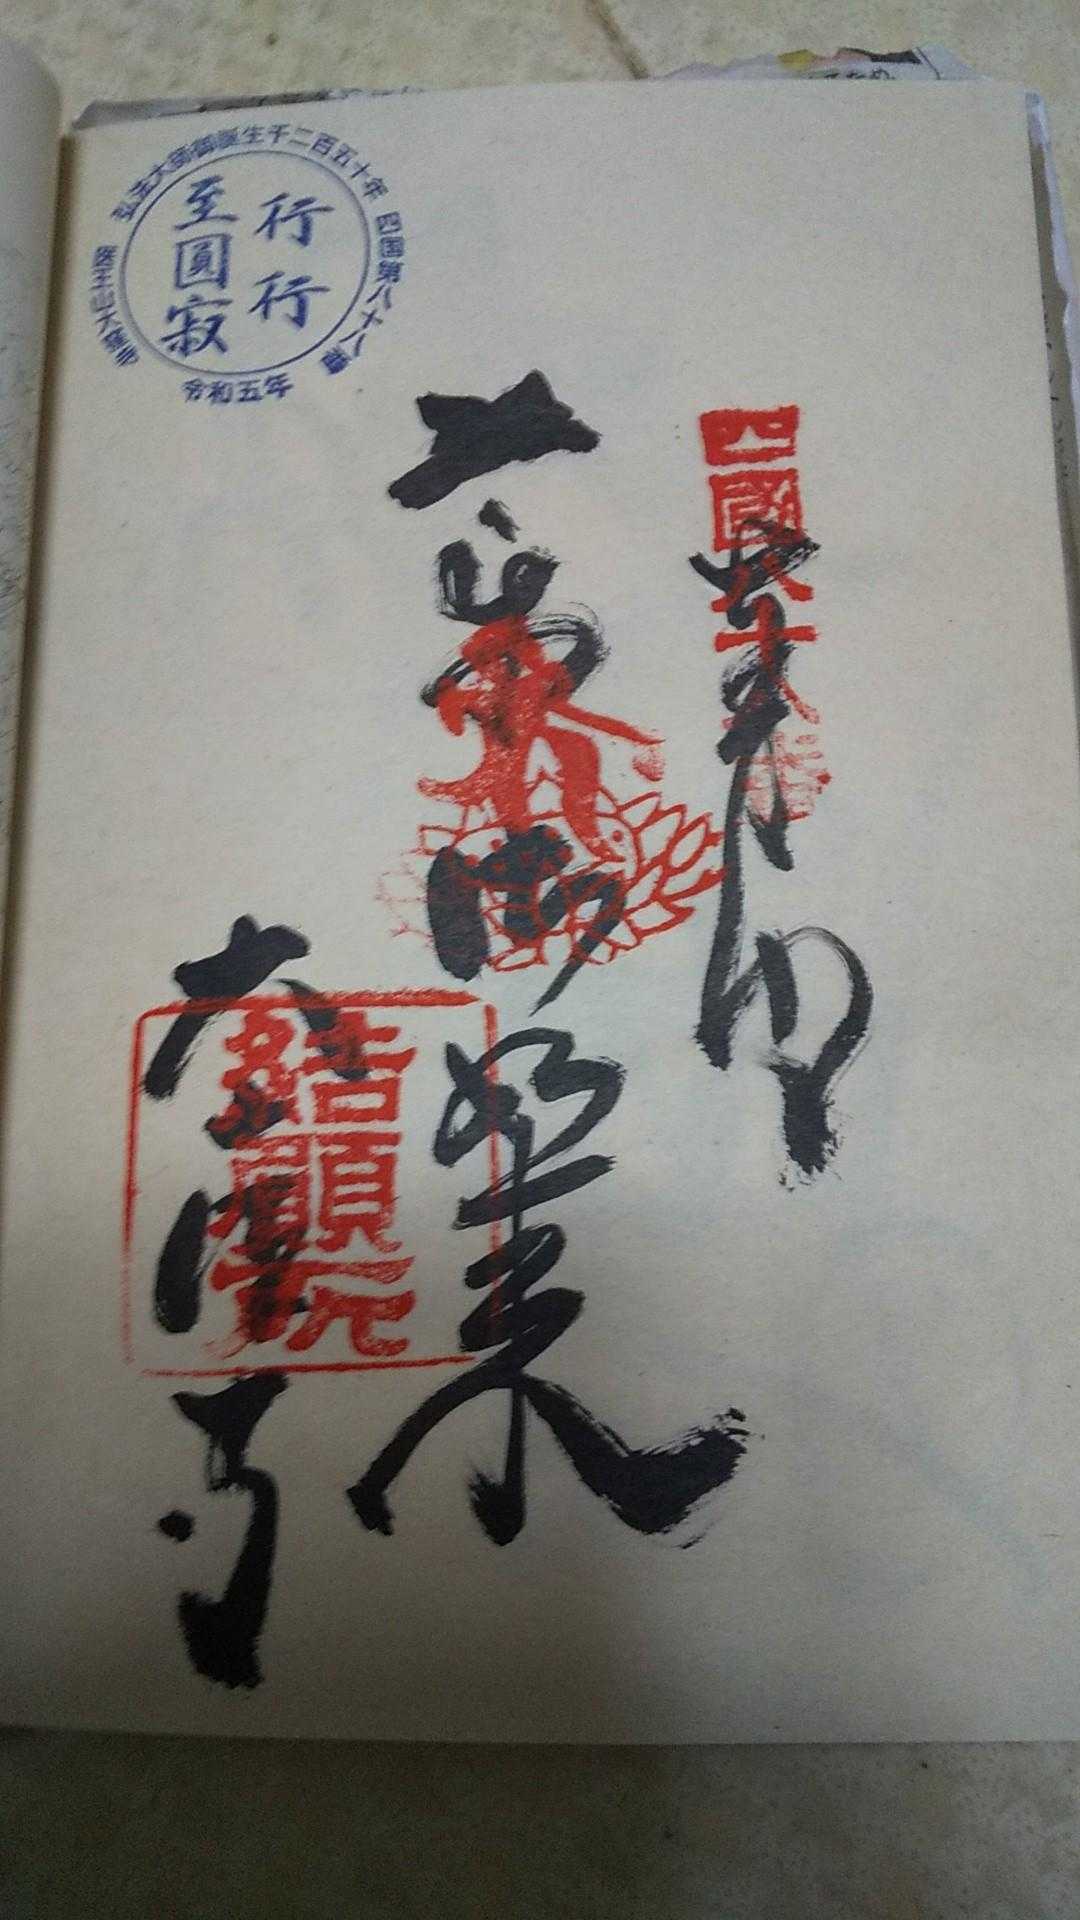 弘法大師御誕生千二百五十年
四国第八十八番
医王山大窪寺
令和五年
行行
至圓寂
四國八十八番
奉納
如来
大窪寺
結願所